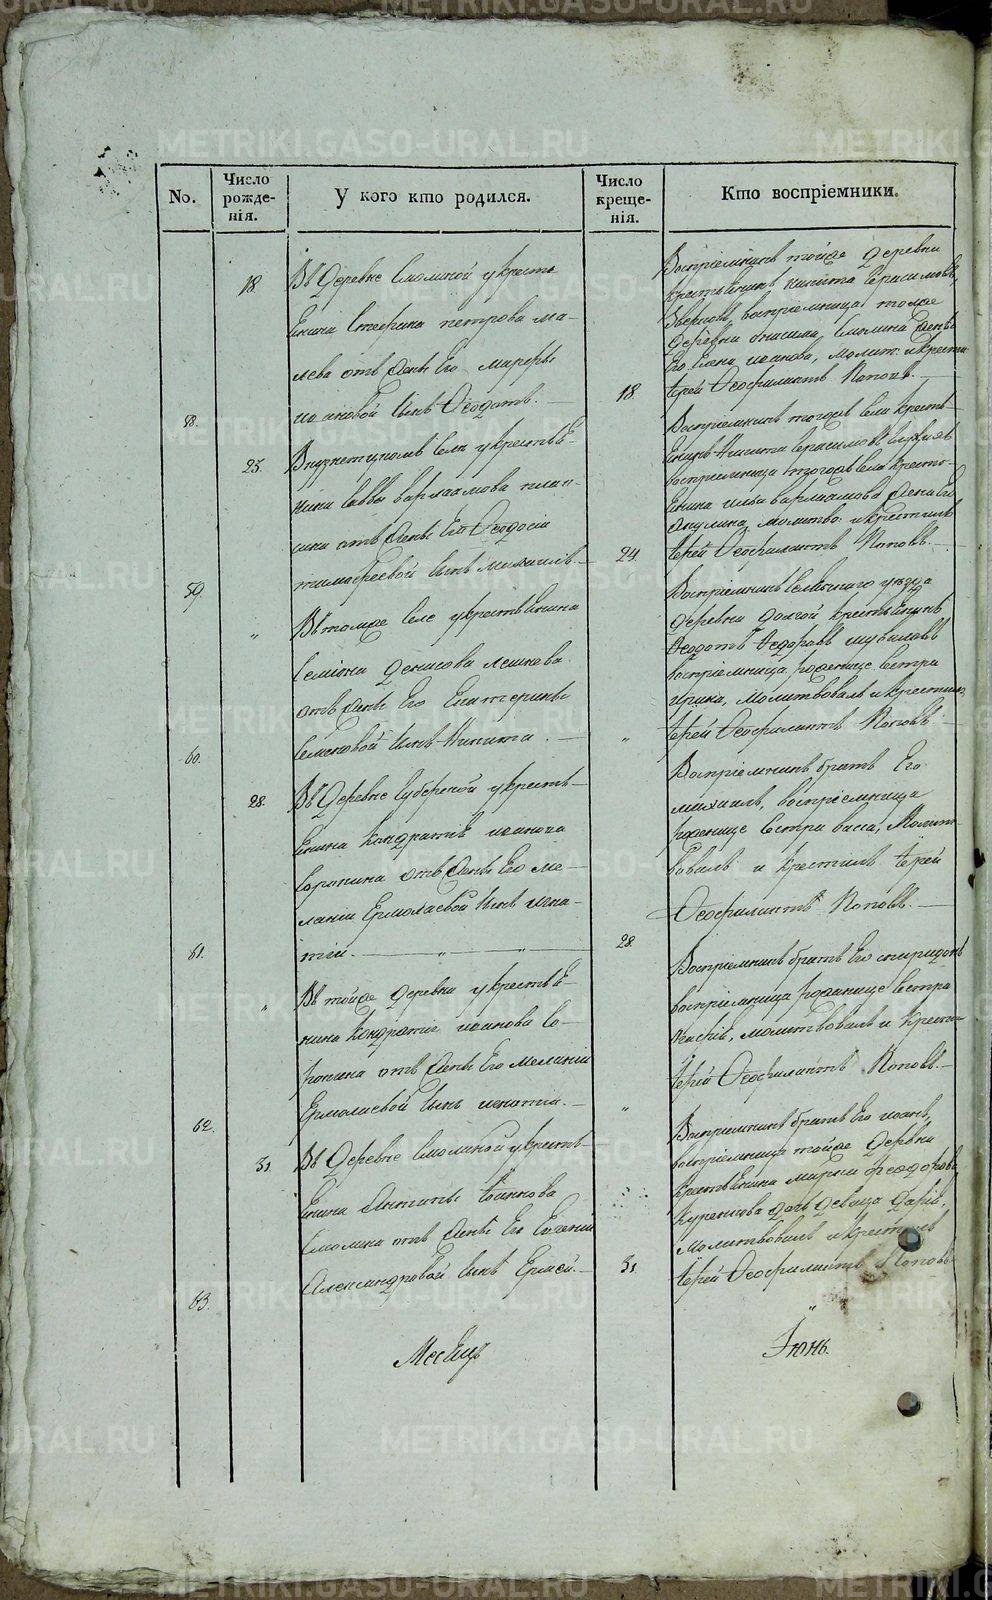 No.
Число рожде- нія.
У кого кто родился.
Число креще- нія.
Кто воспріемники.
18.
Въ Деревне Смолиной укресть
Енина Стефана петрова ма-
лева отъ Жены Его марѳы
сынъ Ѳеодотъ.
58.
18.
Воспріемникъ тойже деревни
крестьянинъ никита Герасимовъ
воспріемница тояже
Деревни онисима Смолина жена
Его Елена иоанова, молит: икрести
Іерей Ѳеофилактъ Поповъ.
23.
селе укрестьЕ-
нина Саввы варлаамова
отъ Жены Его Ѳеодосіи
тимофеевой Сынъ михаилъ.
59.
24.
Воспріемникъ тогожъ Села кресть-
Енинъ Никита Герасимовъ
воспріемница тогожъ Села кресть-
Енина ильи варлаамова Жена Его
Акулина, молитво: икрестилъ
Іерей Ѳеофилактъ Поповъ.
"
Въ томже Селе укрестьЕнина
Семіона денисова
отъ Жены Его Екатерины
Семеновой Сынъ Никита.
60.
"
Воспріемникъ уезда
деревни долгой крестьЕнинъ
Ѳеодотъ Ѳедоровъ
воспріемница роженице Сестра
Ирина, молитвовалъ икрестилъ
Іерей Ѳеофилактъ Поповъ.
28.
Въ Деревне укресть-
Енина Кондратія иоанова
Сопонина отъ Жены Его ме-
ланіи Ермолаевой Сынъ игна-
тій.
61.
28.
Воспріемникъ братъ Его
михаилъ, воспріемница
роженице Сестра васса, Молит-
вовалъ и крестилъ Іерей
Ѳеофилактъ Поповъ.
"
Въ тойже Деревни укрестьЕ-
нина Кондратія иоанова Со-
понина отъ Жены Его меланіи
Ермолаевой Сынъ игнатій.
62.
"
Воспріемникъ братъ Его спиридонъ
воспріемница роженице Сестра
молитвовалъ и крестилъ
Іерей Ѳеофилактъ Поповъ.
31.
Въ Деревне Смолиной укресть-
Енина Антипы
Смолина отъ Жены Его Евгеніи
Александровой Сынъ Ермей.
63.
31.
Воспріемникъ братъ Его иоанъ,
воспріемница тойже Деревни
крестьЕнина марки феодорова
дочь девица Дарія,
молитвовалъ икрестилъ
Іерей Ѳеофилактъ Поповъ.
МесЕцъ
Іюнь.
METRIKI.GASO-URAL.RU